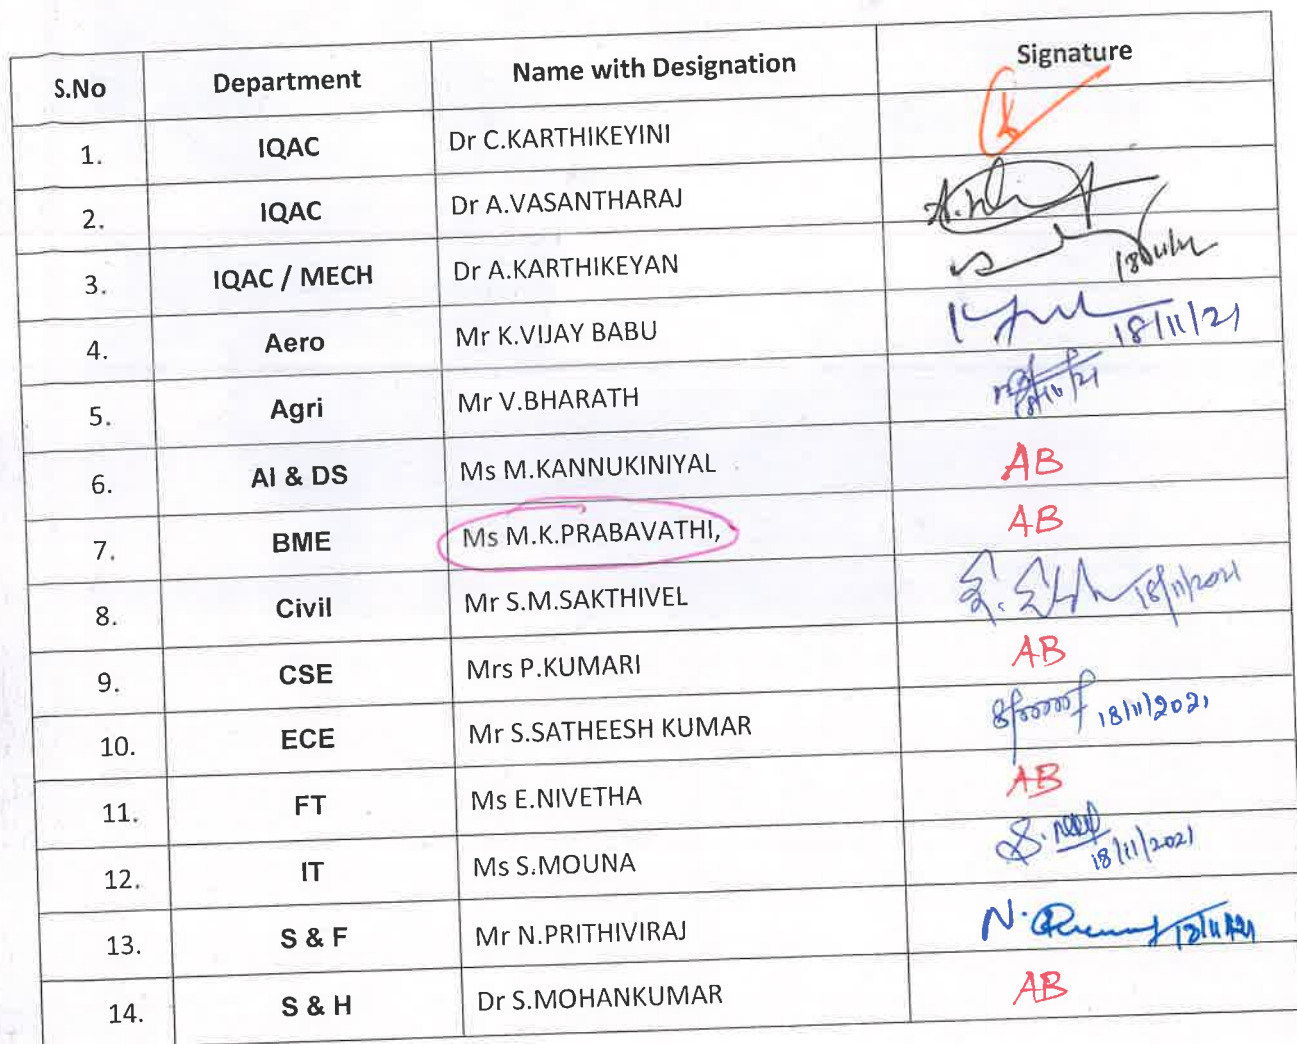 S.No Department Name with Designation Signature
1. IQAC Dr C.KARTHIKEYINI
2. IQAC Dr A.VASANTHARAJ
3. IQAC / MECH Dr A.KARTHIKEYAN
4. Aero Mr K.VIJAY BABU 18/11/21
5. Agri Mr V.BHARATH
6. AI & DS Ms M.KANNUKINIYAL AB
7. BME Ms M.K.PRABAVATHI, AB
8. Civil Mr S.M.SAKTHIVEL 18/11/2021
9. CSE Mrs P.KUMARI AB
10. ECE Mr S.SATHEESH KUMAR 18/11/2021
11. FT Ms E.NIVETHA AB
12. IT Ms S.MOUNA 18/11/2021
13. S & F Mr N.PRITHIVIRAJ N. 18/11/21
14. S & H Dr S.MOHANKUMAR AB